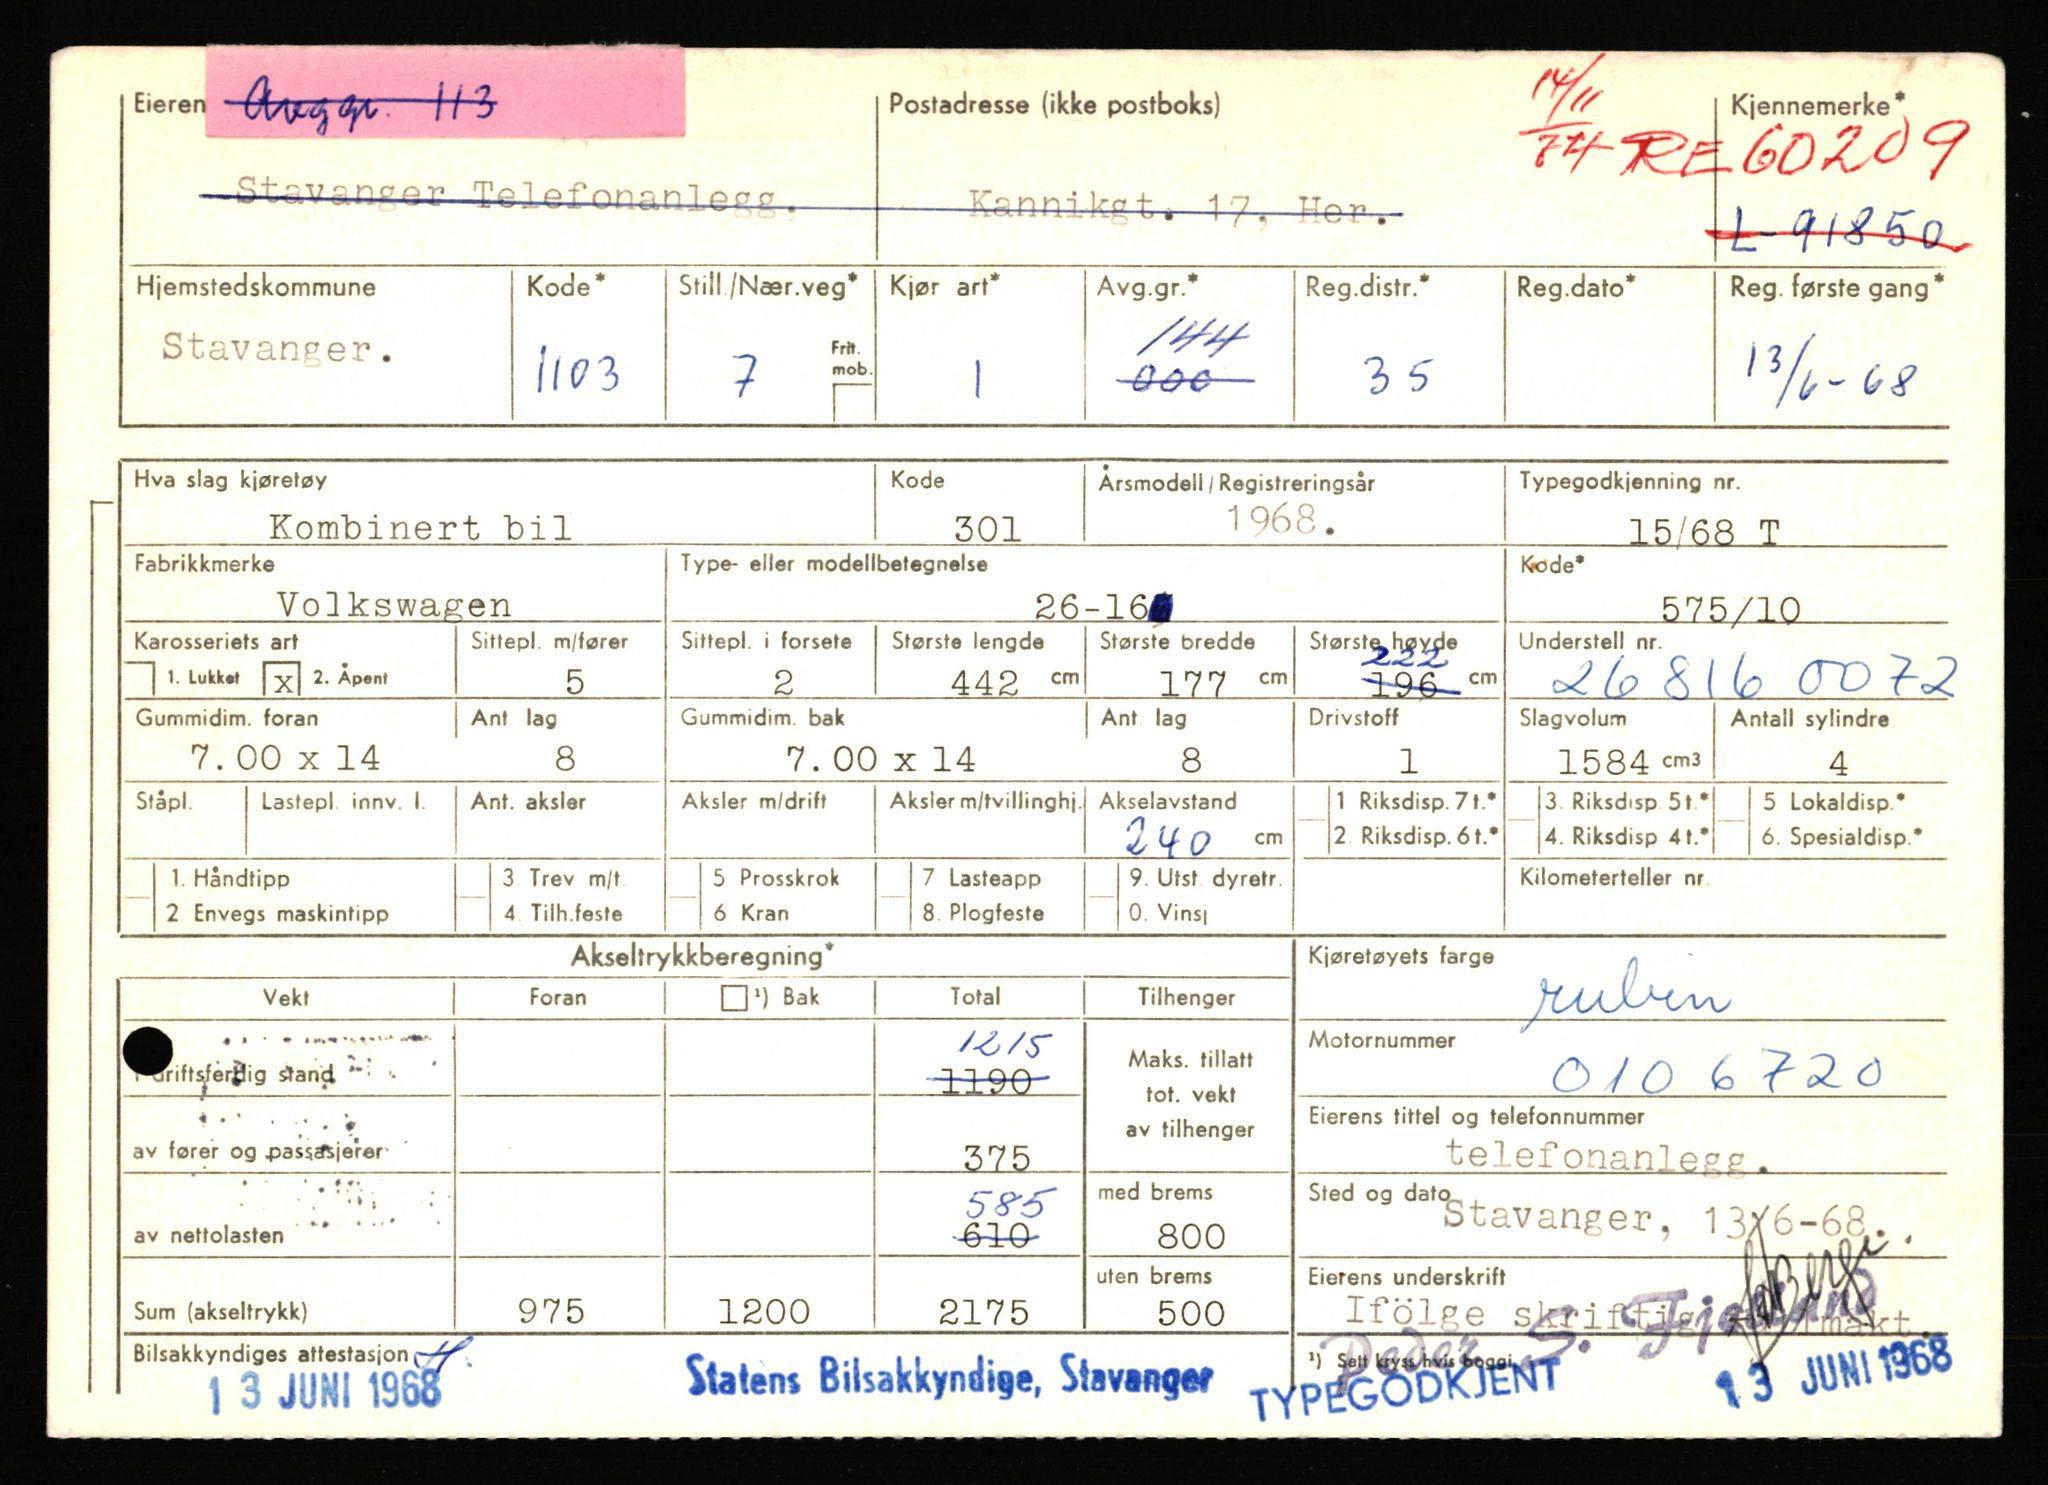 Avg gr. 113
Eieren Postadresse (ikke postboks) 14/11 74 Kjennemerke*
RE 60209
Stavanger Telefonanlegg. Kannikgt. 17, Her.
L-91850
Hjemstedskommune Kode* Still./Nær.veg* Kjør art* Avg.gr.* Reg.distr.* Reg.dato* Reg. første gang*
144
Stavanger. 1103 7 Frit. mob. 1 000 35 13/6-68
Hva slag kjøretøy Kode Årsmodell/Registreringsår Typegodkjenning nr.
Kombinert bil 301 1968. 15/68 T
Fabrikkmerke Type- eller modellbetegnelse Kode*
Volkswagen 26-16 575/10
Karosseriets art Sittepl. m/fører Sittepl. i forsete Største lengde Største bredde Største høyde Understell nr.
222
1. Lukket x 2. Åpent 5 2 442 cm 177 cm 196 cm 268160072
Gummidim. foran Ant lag Gummidim. bak Ant. lag Drivstoff Slagvolum Antall sylindre
7.00 x 14 8 7.00 x 14 8 1 1584 cm3 4
Ståpl. Lastepl. innv. l. Ant. aksler Aksler m/drift Aksler m/tvillinghj. Akselavstand 1 Riksdisp. 7 t.* 3. Riksdisp 5 t.* 5 Lokaldisp.*
240 cm 2. Riksdisp. 6 t.* 4. Riksdisp 4 t.* 6. Spesialdisp.*
1. Håndtipp 3. Trev m/t. 5 Prosskrok 7 Lasteapp 9. Utst. dyretr. Kilometerteller nr.
2 Envegs maskintipp 4. Tilh.feste 6 Kran 8. Plogfeste 0. Vinsj
Akseltrykkberegning* Kjøretøyets farge
Vekt Foran ¹) Bak Total Tilhenger rubin
1215 Motornummer
I driftsferdig stand 1190 Maks. tillatt tot. vekt av tilhenger 0106720
Eierens tittel og telefonnummer
av fører og passasjerer 375 telefonanlegg.
585 med brems Sted og dato
av nettolasten 610 800 Stavanger, 13/6-68.
uten brems Eierens underskrift
Sum (akseltrykk) 975 1200 2175 500 Ifölge skriftlig
Peder S. Fjeland
Bilsakkyndiges attestasjon ¹) Sett kryss hvis boggi
13 JUNI 1968 Statens Bilsakkyndige, Stavanger TYPEGODKJENT 13 JUNI 1968